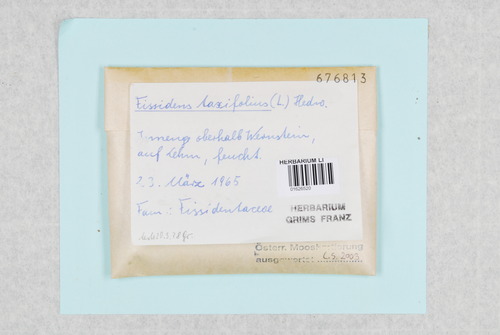 676813
Fissidens taxifolius (L.) Hedw.
oberhalb Wernstein,
auf Lehm, feucht.
23. März 1965
Fam.: Fissidentaceae
HERBARIUM LI
HERBARIUM
GRIMS FRANZ
Österr. Mooskartierung
ausgewertet